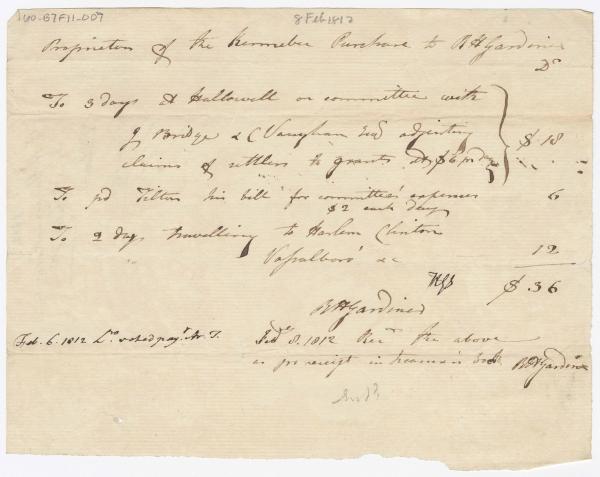 140-B7F11-007
8 Feb 1812
Proprietors of the Kennebec Purchase to R H Gardiner
Dr
To 3 days at Hallowell on committee with
J Bridge & C Vaughan Esqr adjusting
claims of settlers to grants at $6 pr day
$ 18
To pd Tilton his bill for committee's expenses
$2 each day
6
To 2 days travelling to Harlem Clinton
Vassalboro &c
12
$ 36
R H Gardiner
Feb. 6. 1812 voted pay.t
Feby 8. 1812 Recd the above
as pr receipt in treasurer's book R H Gardiner